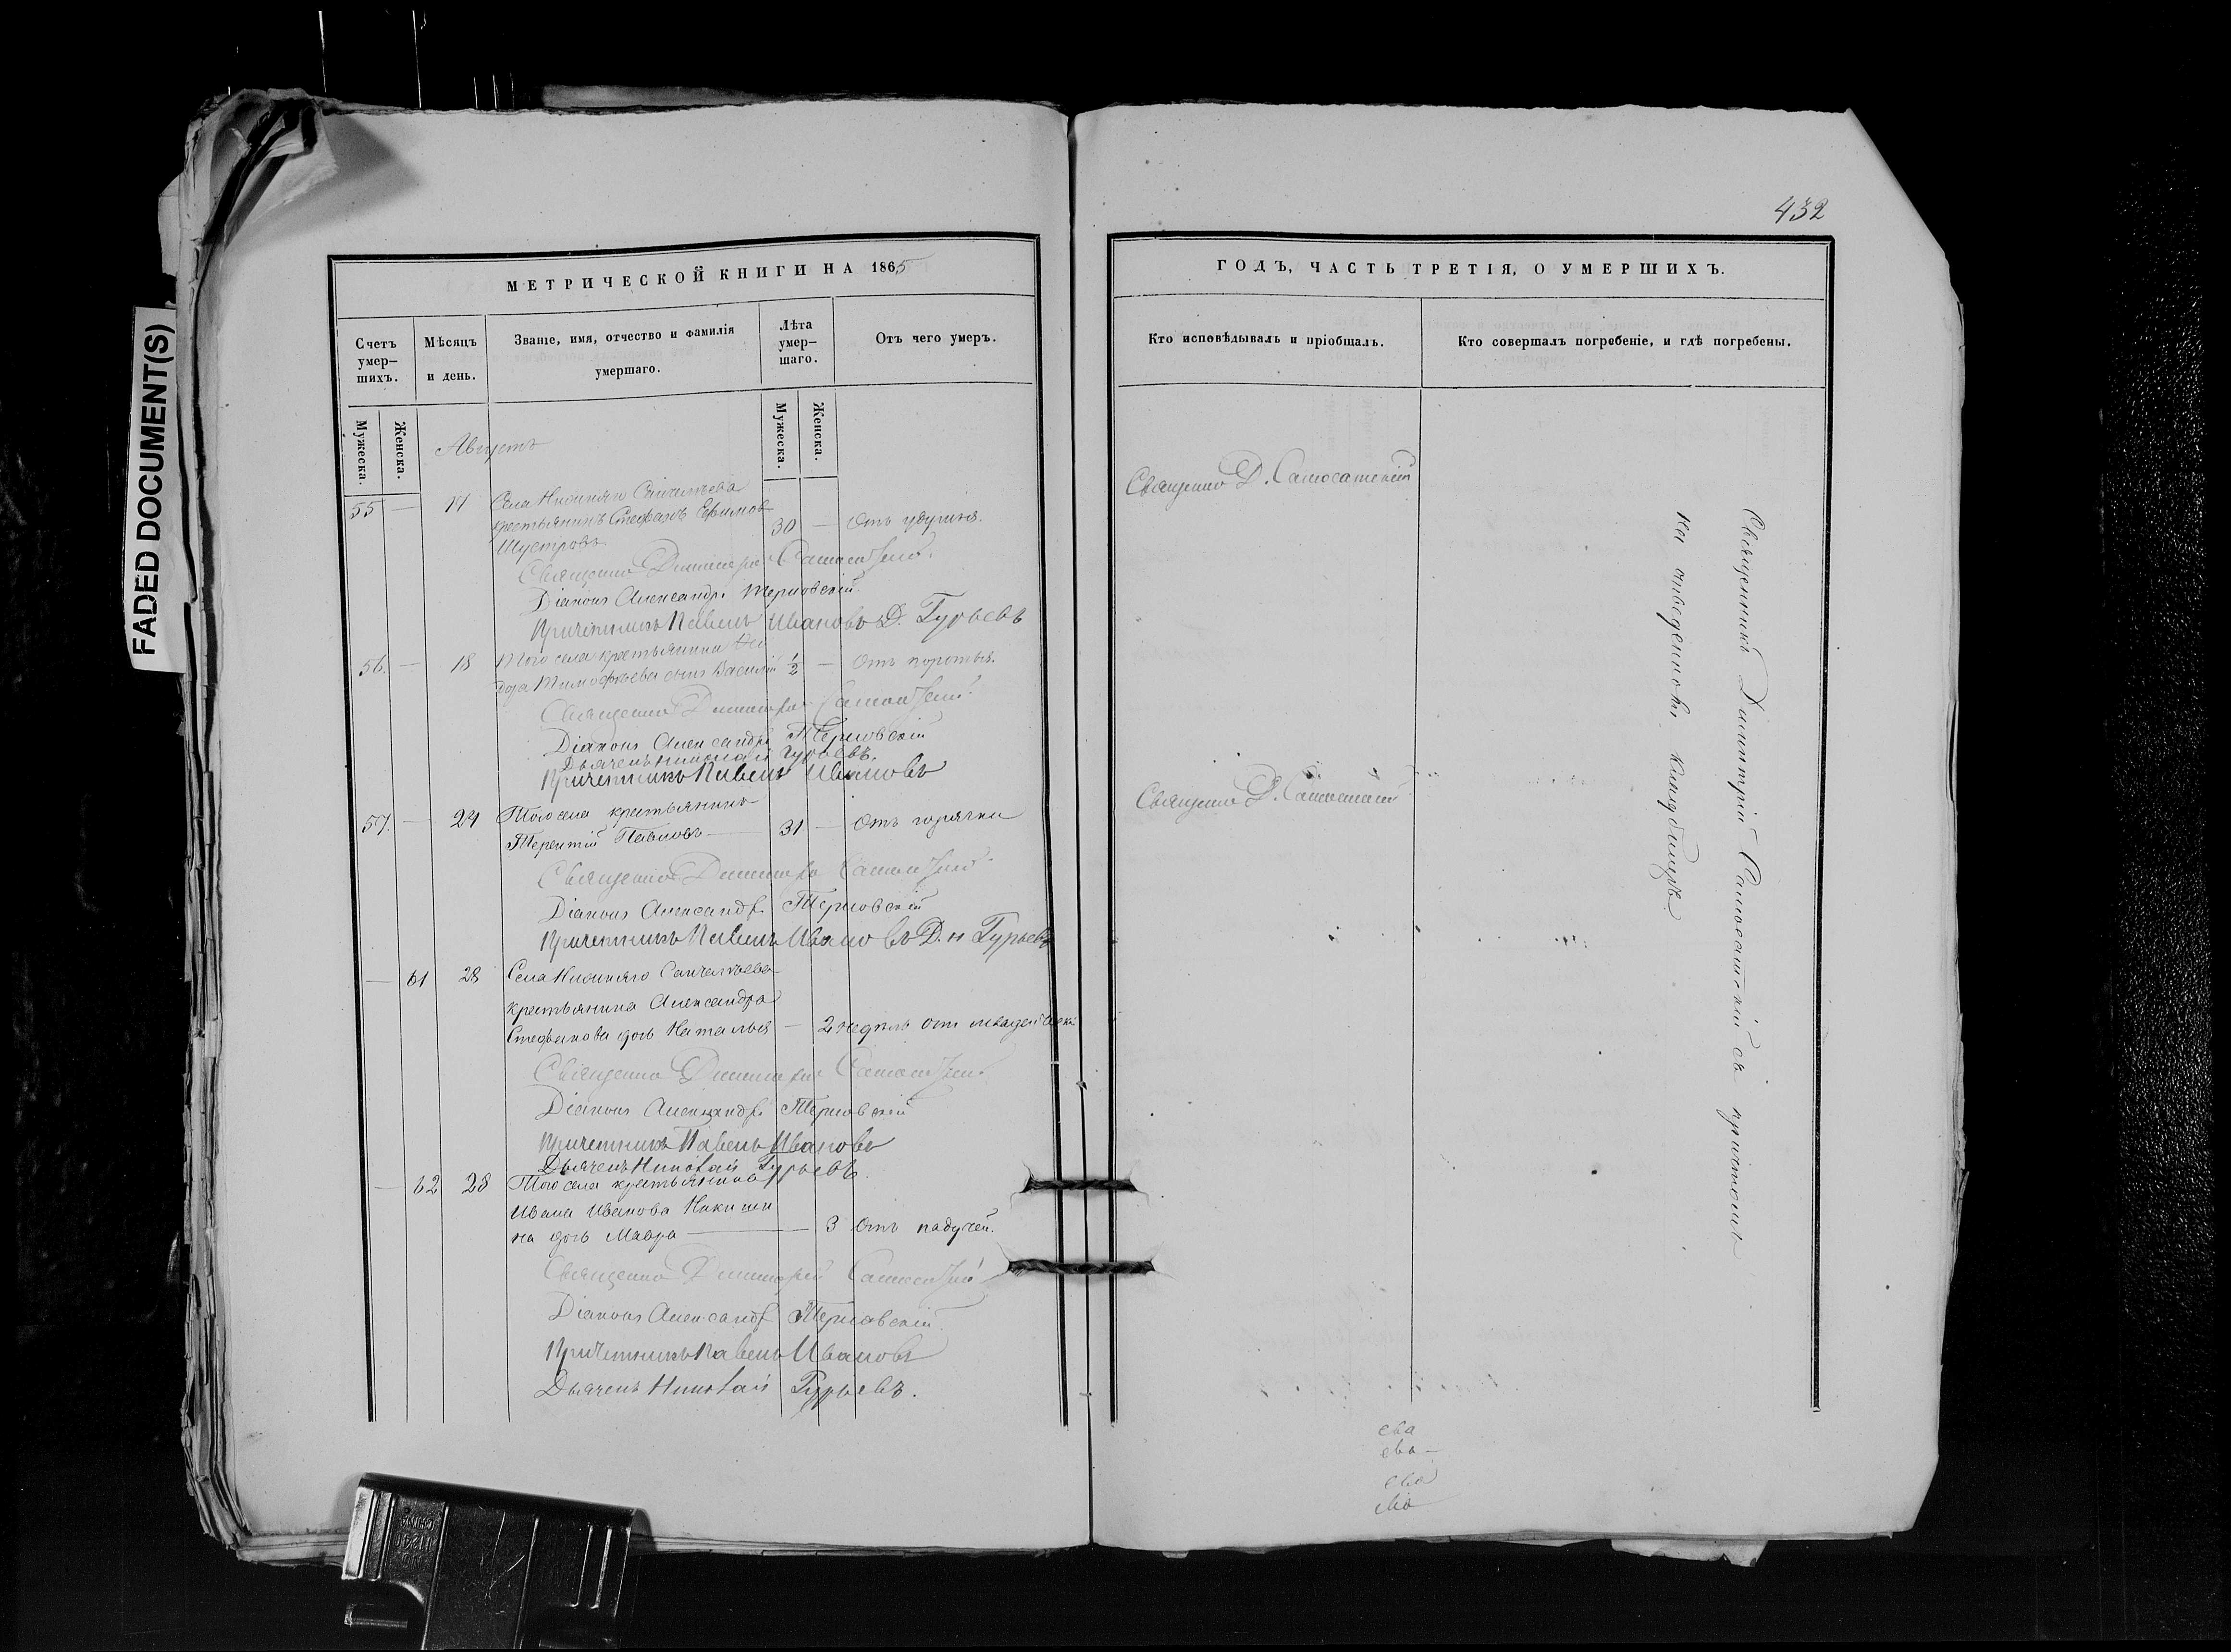 FADED DOCUMENT(S)
МЕТРИЧЕСКОЙ КНИГИ НА 1865
Счетъ умер-шихъ.
Мѣсяцъ и день.
Званіе, имя, отчество и фамилія умершаго.
Лѣта умер-шаго.
Отъ чего умеръ.
Мужеска.
Женска.
Мужеска.
Женска.
Августъ
55 — 17 Села Нижняго Санчелѣева
крестьянинъ Стефанъ Ефимовъ
Шустровъ 30 — Отъ удушья.
Священно Димитрій Самосатскій.
Діаконъ Александръ Терновскій.
Причетникъ Павелъ Ивановъ Д. Гурьевъ
56. — 18 Того села крестьянина
дора Тимофѣева сынъ Василій ½ — Отъ
Священно Димитрій Самосатскій.
Діаконъ Александръ Терновскій
Дьячекъ Николай Гурьевъ.
Причетникъ Павелъ Ивановъ
57. — 24 Того села крестьянинъ
Терентій Павловъ — 31 — Отъ горячки
Священно Димитрій Самосатскій.
Діаконъ Александръ Терновскій
Причетникъ Павелъ Ивановъ Д. Н Гурьевъ
— 61 28 Села Нижняго Санчелѣева
крестьянина Александра
Стефанова дочь Наталья — 2 недѣль от младенческ
Священно Димитрій Самосатскій
Діаконъ Александръ Терновскій
Причетникъ Павелъ Ивановъ
Дьячекъ Николай Гурьевъ.
— 62 28 Того села крестьянина
Ивана Иванова Никиши
на дочь Мавра — 3 Отъ падучей.
Священно Димитрій Самосатскій
Діаконъ Александръ Терновскій.
Причетникъ Павелъ Ивановъ
Дьячекъ Николай Гурьевъ.
432
ГОДЪ, ЧАСТЬ ТРЕТІЯ, О УМЕРШИХЪ.
Кто исповѣдывалъ и пріобщалъ.
Кто совершалъ погребеніе, и гдѣ погребены.
Священно Д. Самосатскій
Священно Д. Самосатскій
Священникъ Димитрій Самосатскій съ причтомъ
на отведенномъ кладбищѣ.
ева
ева —
ева
ева